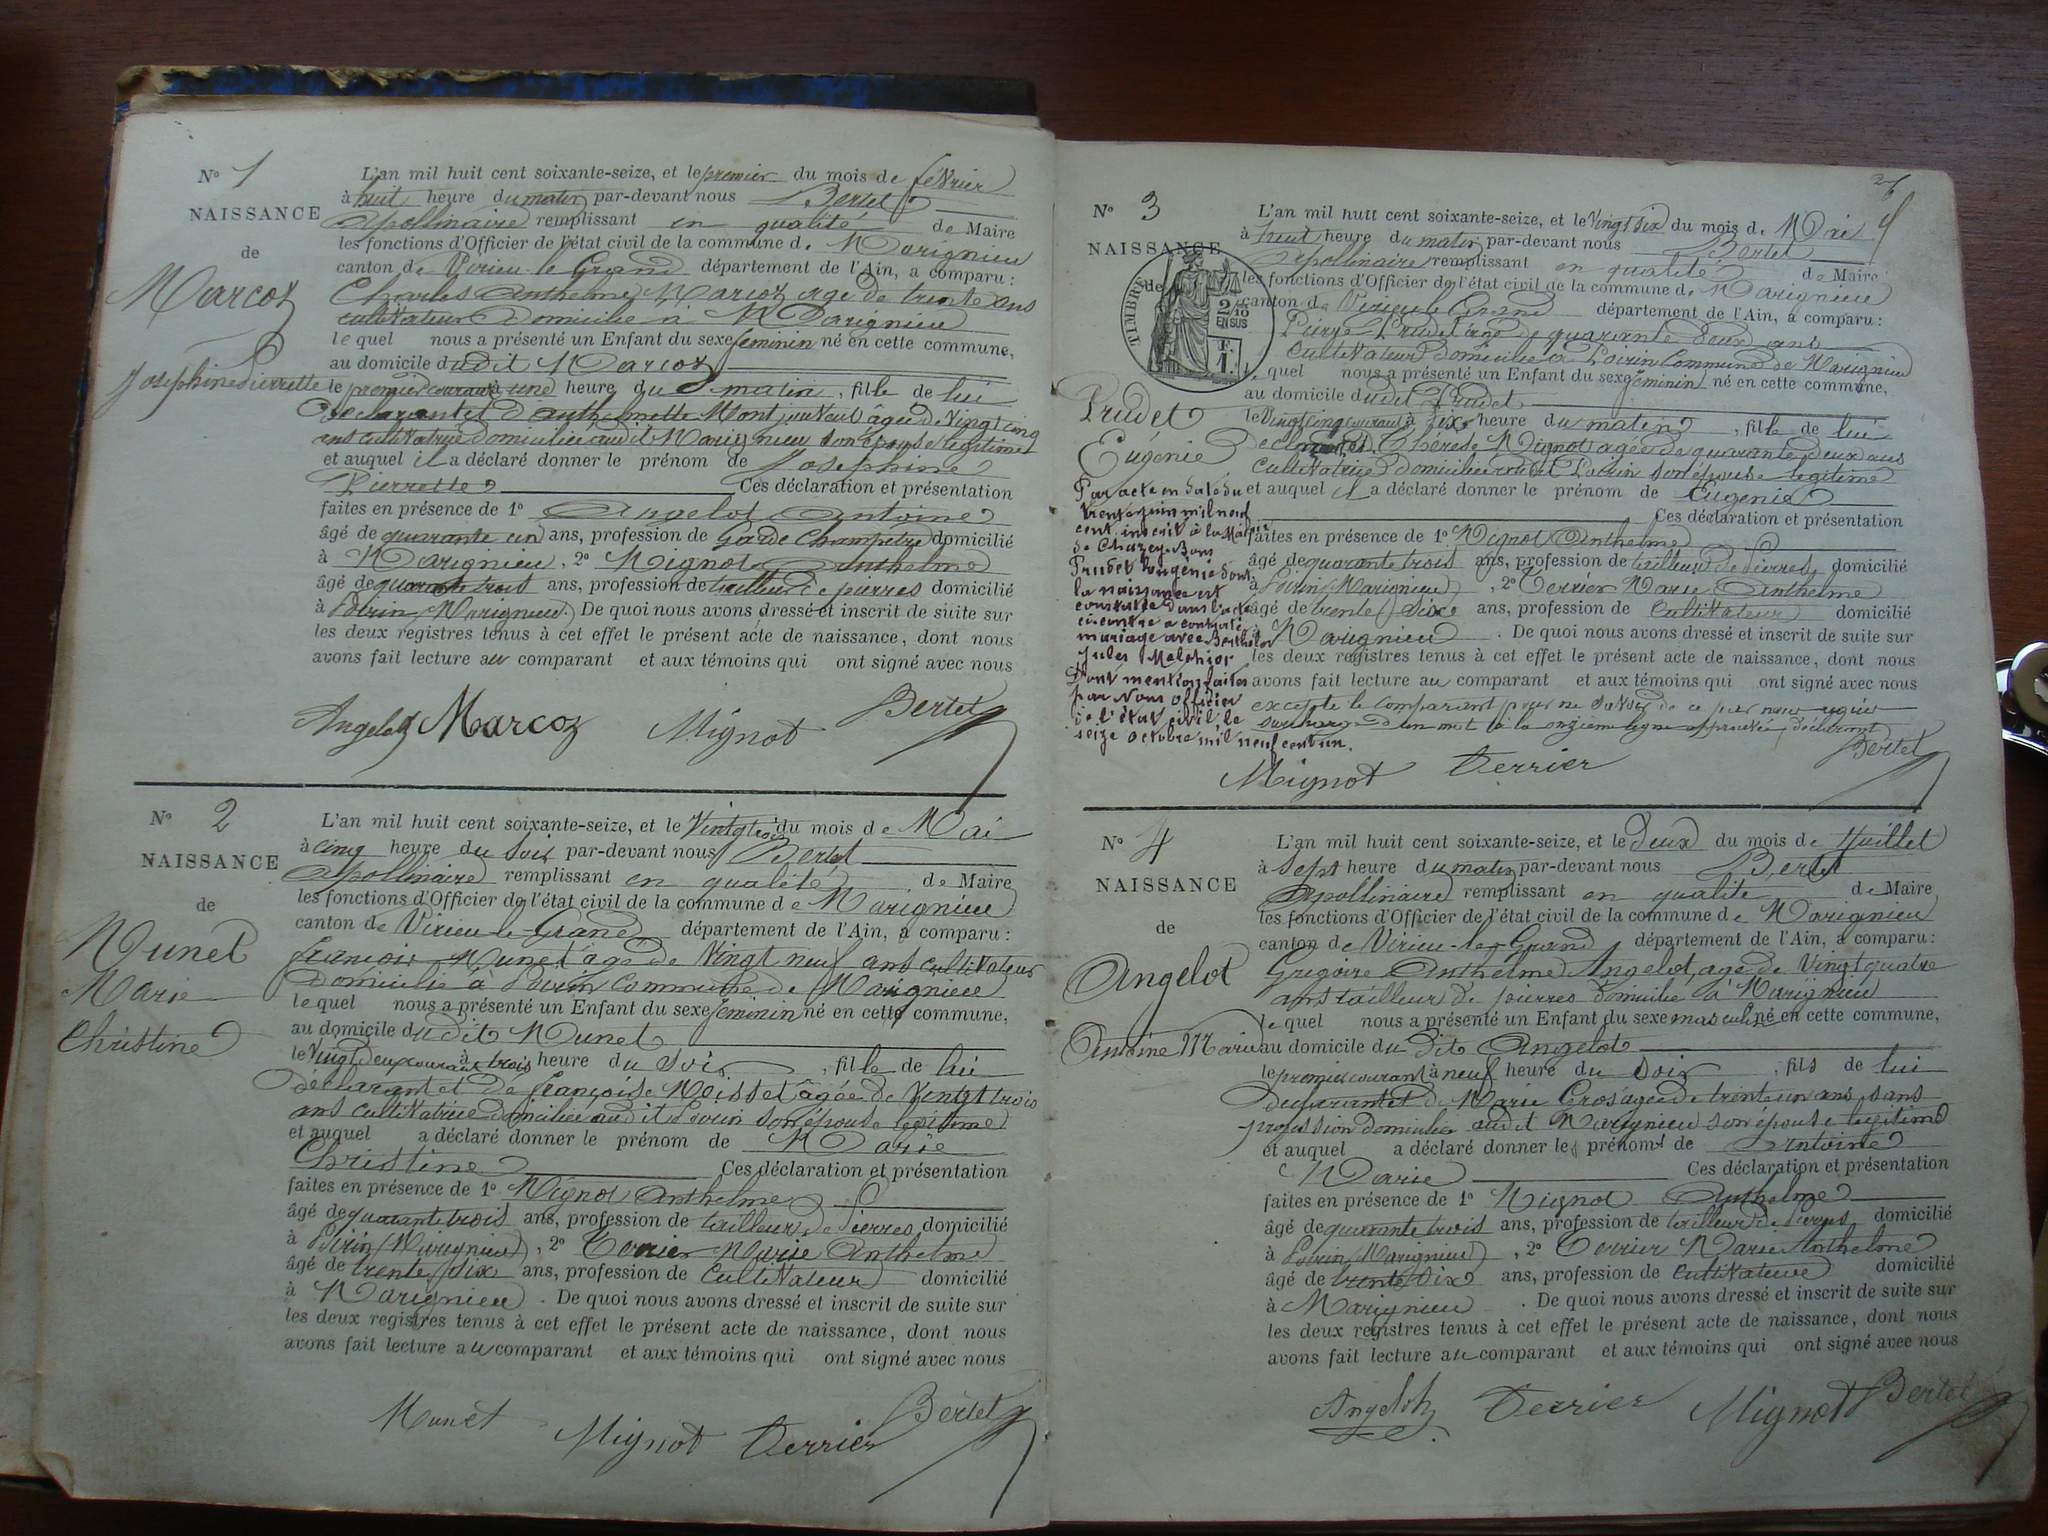 N° 1
NAISSANCE
de
Marcoz
Josephine Pierrette
L'an mil huit cent soixante-seize, et le premier du mois de fevrier
à huit heure du matin par-devant nous Bertet
Apollinaire remplissant en qualité de Maire
les fonctions d'Officier de l'état civil de la commune de Marignieu
canton de Virieu-le-Grand département de l'Ain, a comparu :
Charles Anthelme Marcoz age de trente ans
cultivateur domicilie à Marignieu
lequel nous a présenté un Enfant du sexe feminin né en cette commune,
au domicile dudit Marcoz
le premier courant à une heure du matin, fille de lui
declarant et d'anthelmette Montjouvent âgée de Vingt cinq
ans cultivatrice domiciliée audit Marignieu son épouse legitime
et auquel il a déclaré donner le prénom de Josephine
Pierrette Ces déclaration et présentation
faites en présence de 1° Angelot Antoine
âgé de quarante un ans, profession de Garde Champetre domicilié
à Marignieu, 2° Mignot Anthelme
âgé de quarante trois ans, profession de tailleur de pierres domicilié
à Poirin (Marignieu) De quoi nous avons dressé et inscrit de suite sur
les deux registres tenus à cet effet le présent acte de naissance, dont nous
avons fait lecture au comparant et aux témoins qui ont signé avec nous
Angelot Marcoz Mignot Bertet
N° 2
NAISSANCE
de
Munet
Marie
Christine
L'an mil huit cent soixante-seize, et le Vingt trois du mois de Mai
à cinq heure du soir par-devant nous Bertet
Apollinaire remplissant en qualité de Maire
les fonctions d'Officier de l'état civil de la commune de Marignieu
canton de Virieu-le-Grand département de l'Ain, a comparu :
françois Munet âgé de Vingt neuf ans cultivateur
domicilié à Poirin Commune de Marignieu
lequel nous a présenté un Enfant du sexe feminin né en cette commune,
au domicile dudit Munet
le Vingt deux courant à trois heure du soir, fille de lui
déclarant et de françoise Moisset âgée de Vingt trois
ans cultivatrice domiciliée audit Poirin son épouse legitime
et auquel a déclaré donner le prénom de Marie
Christine Ces déclaration et présentation
faites en présence de 1° Mignot Anthelme
âgé de quarante trois ans, profession de tailleur de Pierres domicilié
à Poirin (Marignieu), 2° Terrier Marie Anthelme
âgé de trente six ans, profession de Cultivateur domicilié
à Marignieu. De quoi nous avons dressé et inscrit de suite sur
les deux registres tenus à cet effet le présent acte de naissance, dont nous
avons fait lecture au comparant et aux témoins qui ont signé avec nous
Munet Mignot Terrier Bertet
N° 3
NAISSANCE
de
TIMBRE
2/10
EN SUS
F.
1.
Prudet
Eugénie
Par acte en date du
trente juin mil neuf
cent inscrit à la Mairie
de Chazey-Bons
Prudet Eugénie dont
la naissance est
constatée dans l'acte
ci contre a contracté
mariage avec Berthelot
Jules Melchior
Dont mention faite
par Nous officier
de l'état civil le
seize octobre mil neuf cent un.
L'an mil huit cent soixante-seize, et le Vingt six du mois de Mai
à huit heure du matin par-devant nous Bertet
Apollinaire remplissant en qualité de Maire
les fonctions d'Officier de l'état civil de la commune de Marignieu
canton de Virieu le Grand département de l'Ain, a comparu :
Pierre Prudet agé de quarante deux ans
Cultivateur domicilié à Poirin Commune de Marignieu
lequel nous a présenté un Enfant du sexe feminin né en cette commune,
au domicile dudit Prudet
le Vingt cinq courant à dix heure du matin, fille de lui
declarant et Thérèse Mignot agée de quarante deux ans
cultivatrice domiciliée audit Poirin son épouse legitime
et auquel il a déclaré donner le prénom de Eugenie
Ces déclaration et présentation
faites en présence de 1° Mignot Anthelme
âgé de quarante trois ans, profession de tailleur de Pierres, domicilié
à Poirin (Marignieu), 2° Terrier Marie Anthelme
âgé de trente six ans, profession de Cultivateur domicilié
à Marignieu. De quoi nous avons dressé et inscrit de suite sur
les deux registres tenus à cet effet le présent acte de naissance, dont nous
avons fait lecture au comparant et aux témoins qui ont signé avec nous
excepté le comparant pour ne savoir de ce par nous requis
surcharge d'un mot à la onzième ligne approuvée, déclarant
Mignot Terrier Bertet
N° 4
NAISSANCE
de
Angelot
Antoine Marie
L'an mil huit cent soixante-seize, et le Deux du mois de Juillet
à sept heure du matin par-devant nous Bertet
Apollinaire remplissant en qualite de Maire
les fonctions d'Officier de l'état civil de la commune de Marignieu
canton de Virieu-le-Grand département de l'Ain, a comparu :
Grégoire Anthelme Angelot, age de Vingt quatre
ans tailleur de pierres domicilié à Marignieu
lequel nous a présenté un Enfant du sexe masculin né en cette commune,
au domicile du dit Angelot
le premier courant à neuf heure du soir, fils de lui
declarant et de Marie Gros agée de trente un ans, sans
profession domiciliée audit Marignieu son épouse legitime
et auquel a déclaré donner les prénoms de Antoine
Marie Ces déclaration et présentation
faites en présence de 1° Mignot Anthelme
âgé de quarante trois ans, profession de tailleur de Pierres domicilié
à Poirin (Marignieu), 2° Terrier Marie Anthelme
âgé de trente six ans, profession de cultivateur domicilié
à Marignieu. De quoi nous avons dressé et inscrit de suite sur
les deux registres tenus à cet effet le présent acte de naissance, dont nous
avons fait lecture au comparant et aux témoins qui ont signé avec nous
Angelot Terrier Mignot Bertet